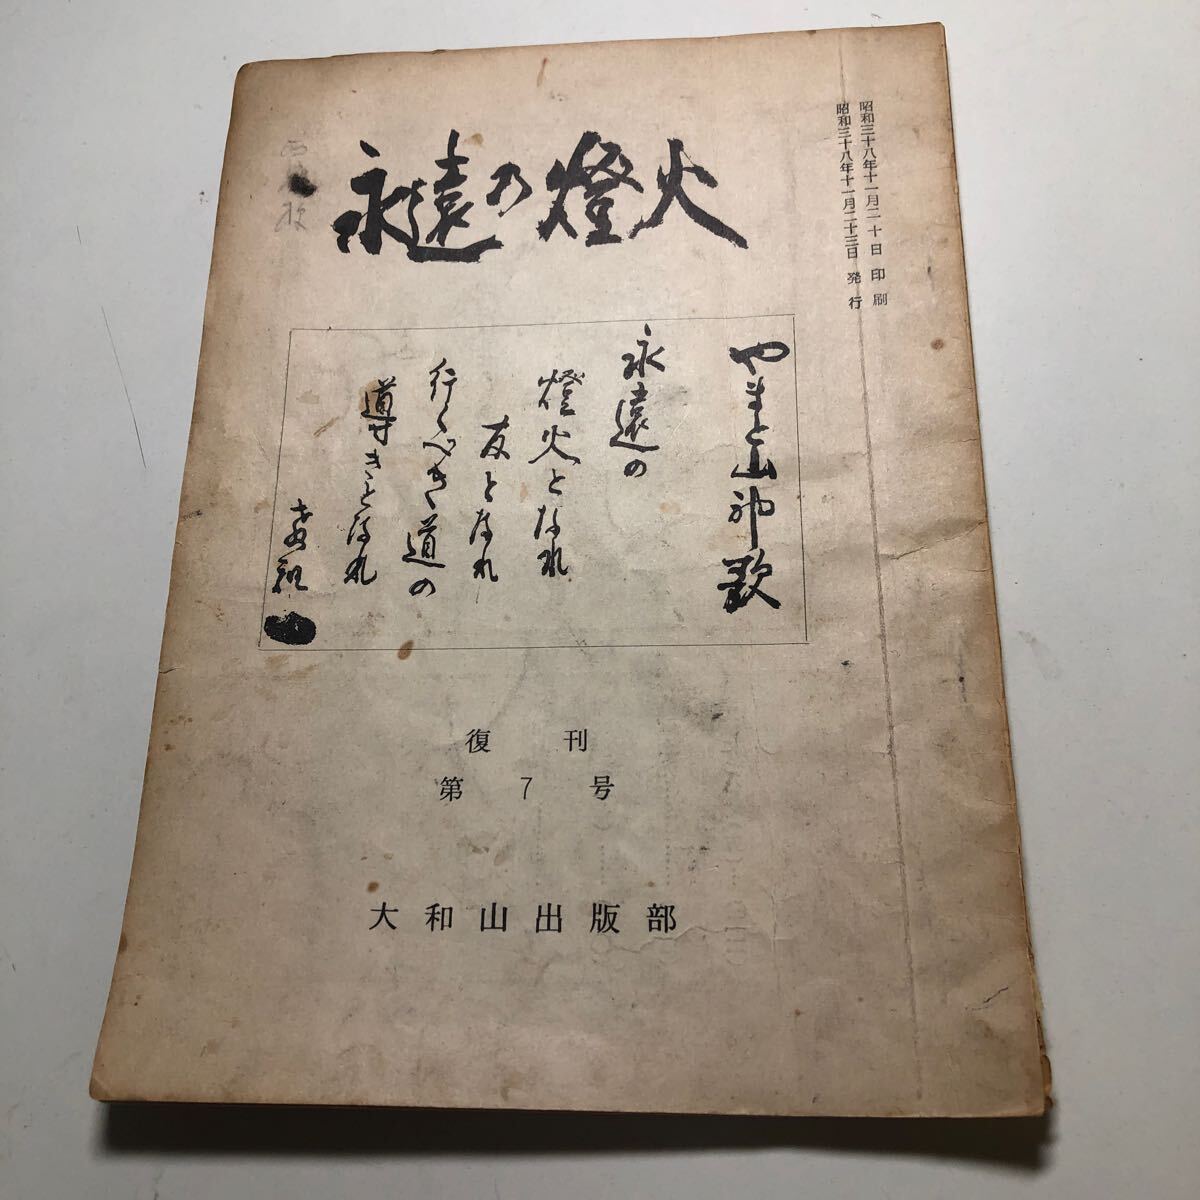 昭和三十八年十一月二十日 印刷
昭和三十八年十一月二十三日 発行
永遠の燈火
やまと山神歌
永遠の
燈火となれ
友となれ
行くべき道の
導きとなれ
教祖
復刊
第7号
大和山出版部